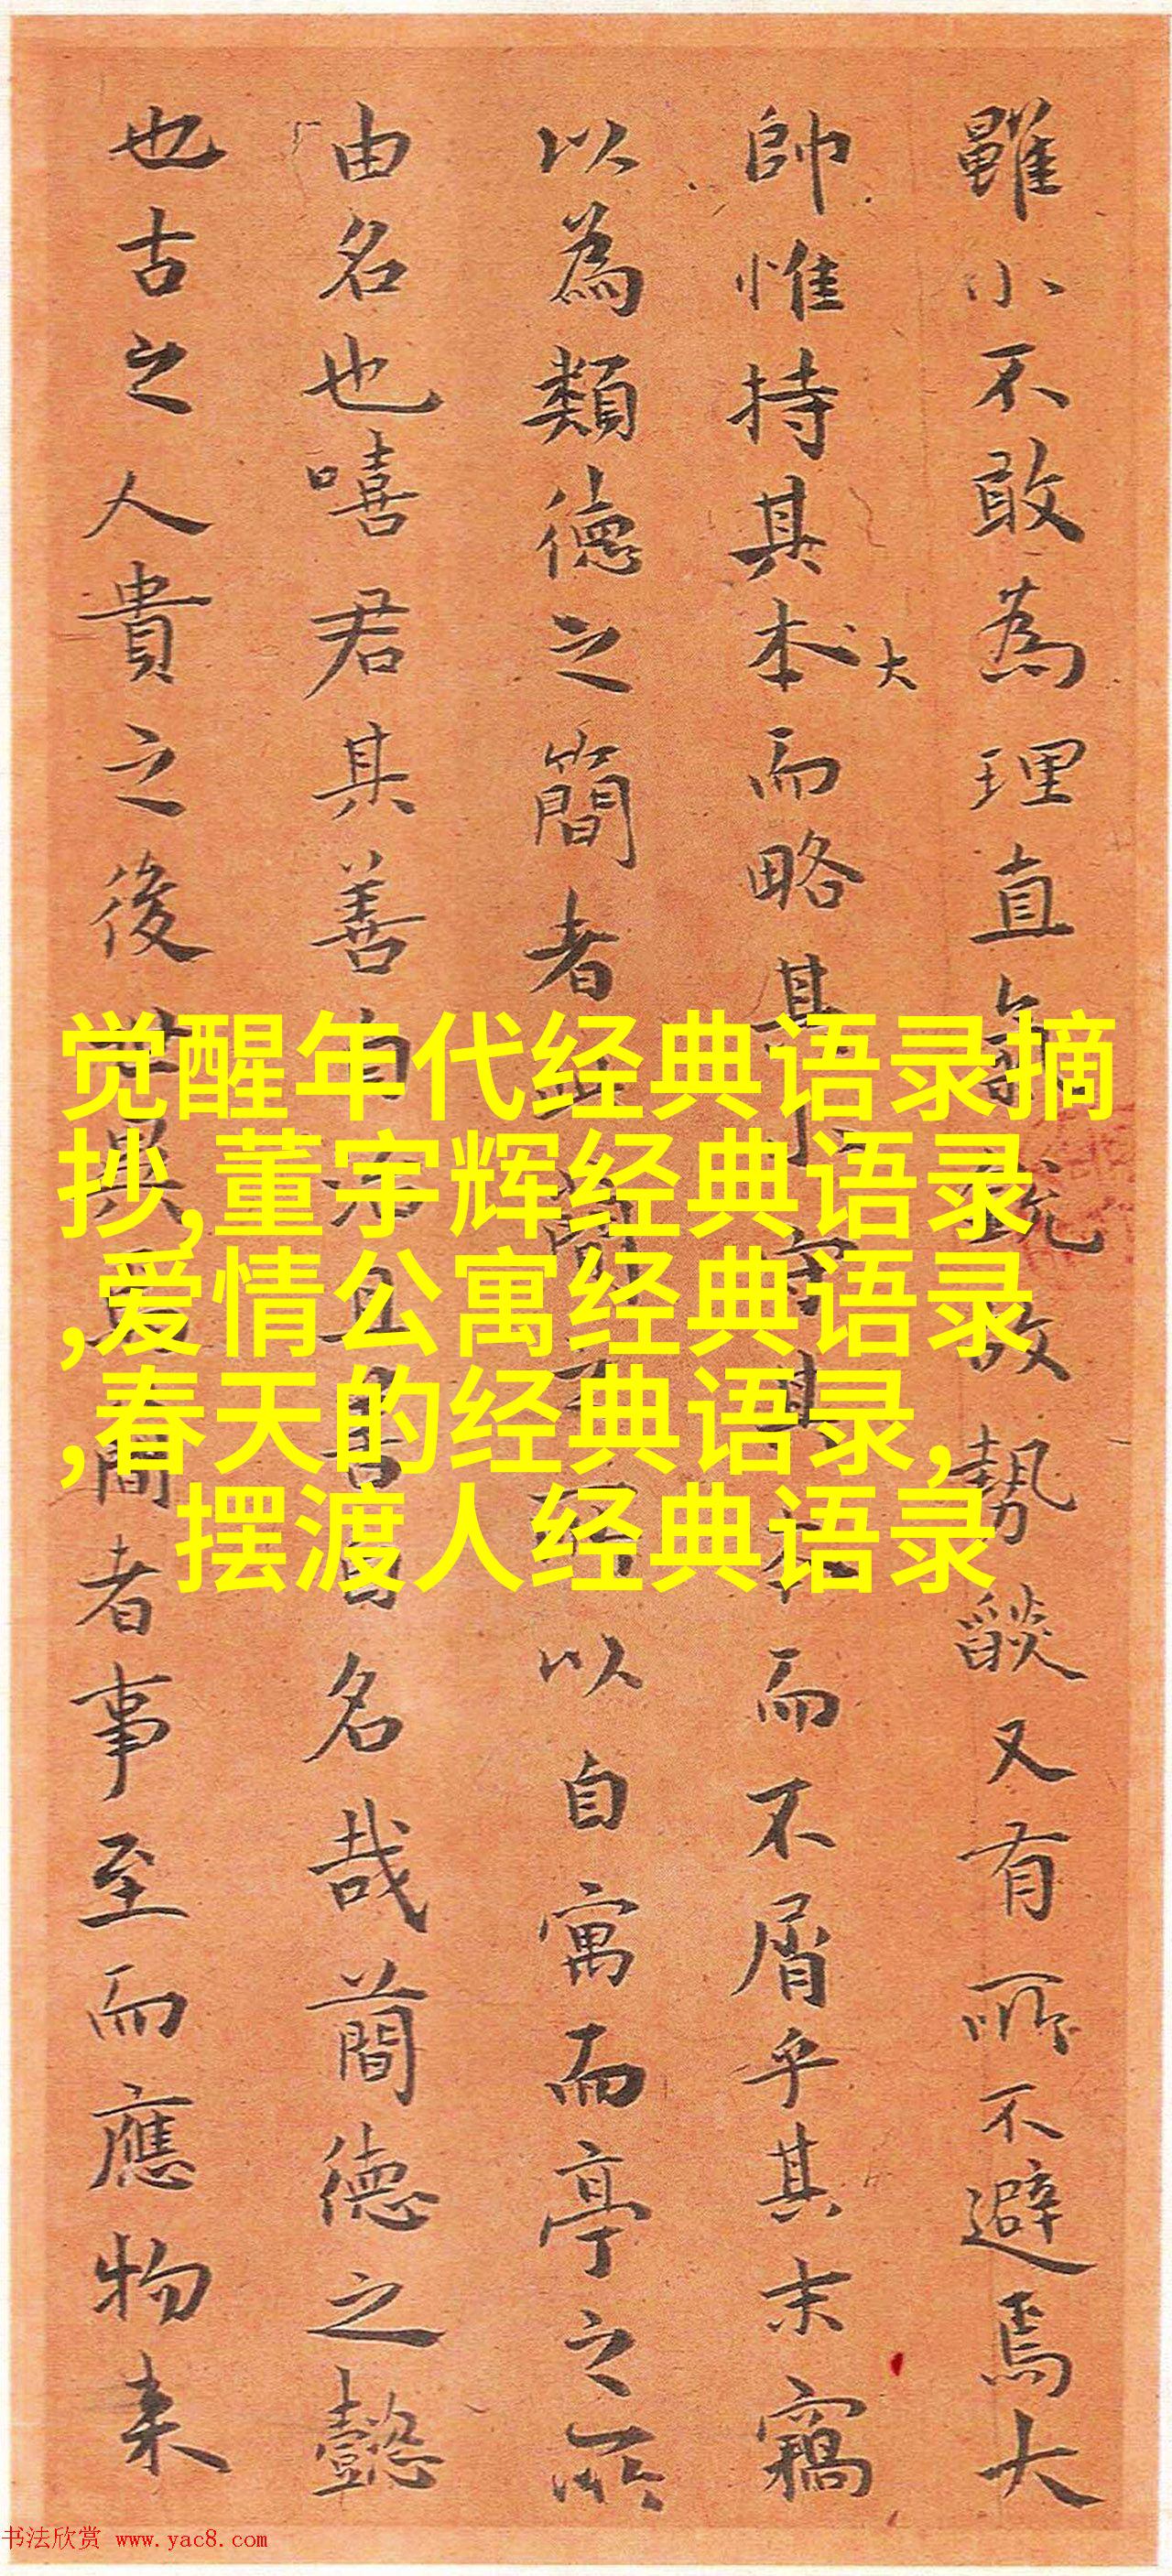 雖小不敢為理直氣銳故勢燄又有所不避焉大
帥惟持其本而略其小守其本而不屑乎其末竊
大
以為類德之簡者簡以自寓而亭之所
由名也嘻君其善自治且善自名哉簡德之懿
也古之人貴之後世異簡者事至而應物来
觉醒年代经典语录摘
抄,董宇辉经典语录
,爱情公寓经典语录
,春天的经典语录,
摆渡人经典语录
书法欣赏 www.yac8.com